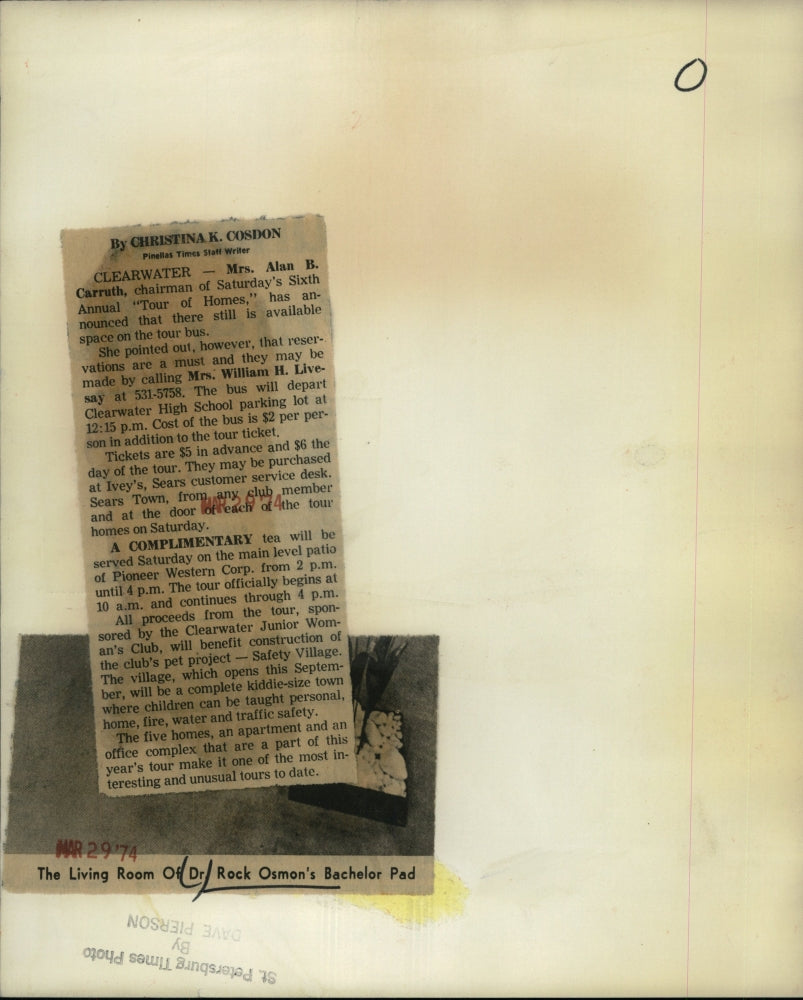 O
By CHRISTINA K. COSDON
Pinellas Times Staff Writer
CLEARWATER — Mrs. Alan B.
Carruth, chairman of Saturday's Sixth
Annual "Tour of Homes," has an-
nounced that there still is available
space on the tour bus.
She pointed out, however, that reser-
vations are a must and they may be
made by calling Mrs. William H. Live-
say at 531-5758. The bus will depart
Clearwater High School parking lot at
12:15 p.m. Cost of the bus is $2 per per-
son in addition to the tour ticket.
Tickets are $5 in advance and $6 the
day of the tour. They may be purchased
at Ivey's, Sears customer service desk.
Sears Town, from any club member
and at the door of each of the tour
homes on Saturday.
MAR 29 '74
A COMPLIMENTARY tea will be
served Saturday on the main level patio
of Pioneer Western Corp. from 2 p.m.
until 4 p.m. The tour officially begins at
10 a.m. and continues through 4 p.m.
All proceeds from the tour, spon-
sored by the Clearwater Junior Wom-
an's Club, will benefit construction of
the club's pet project — Safety Village.
The village, which opens this Septem-
ber, will be a complete kiddie-size town
where children can be taught personal,
home, fire, water and traffic safety.
The five homes, an apartment and an
office complex that are a part of this
year's tour make it one of the most in-
teresting and unusual tours to date.
MAR 29 '74
The Living Room Of Dr. Rock Osmon's Bachelor Pad
St. Petersburg Times Photo
By
DAVE PIERSON